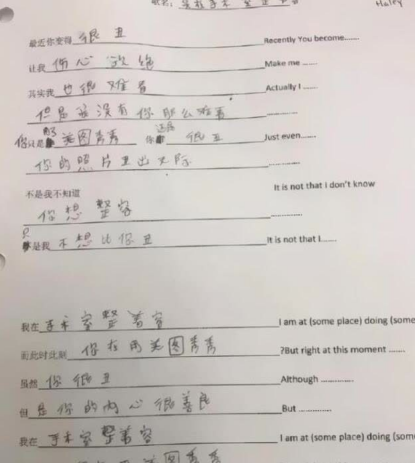 Haley
最近你变得 很丑 Recently You become......
让我 伤心欲绝 Make me ......
其实我 也很难看 Actually I ......
但是我没有你那么难看 .............
你只是 用美图秀秀 你还是很丑 Just even......
你的照片
不是我不知道 It is not that I don't know
你想整容 .............
只是我 不想比你丑 It is not that I......
我在 手术室整着容 I am at (some place) doing (some
而此时此刻 你在用美图秀秀 ?But right at this moment .......
虽然 你很丑 Although ..............
但 是你的内心很善良 But ............
我在 手术室整着容 I am at (some place) doing (som
美图秀秀